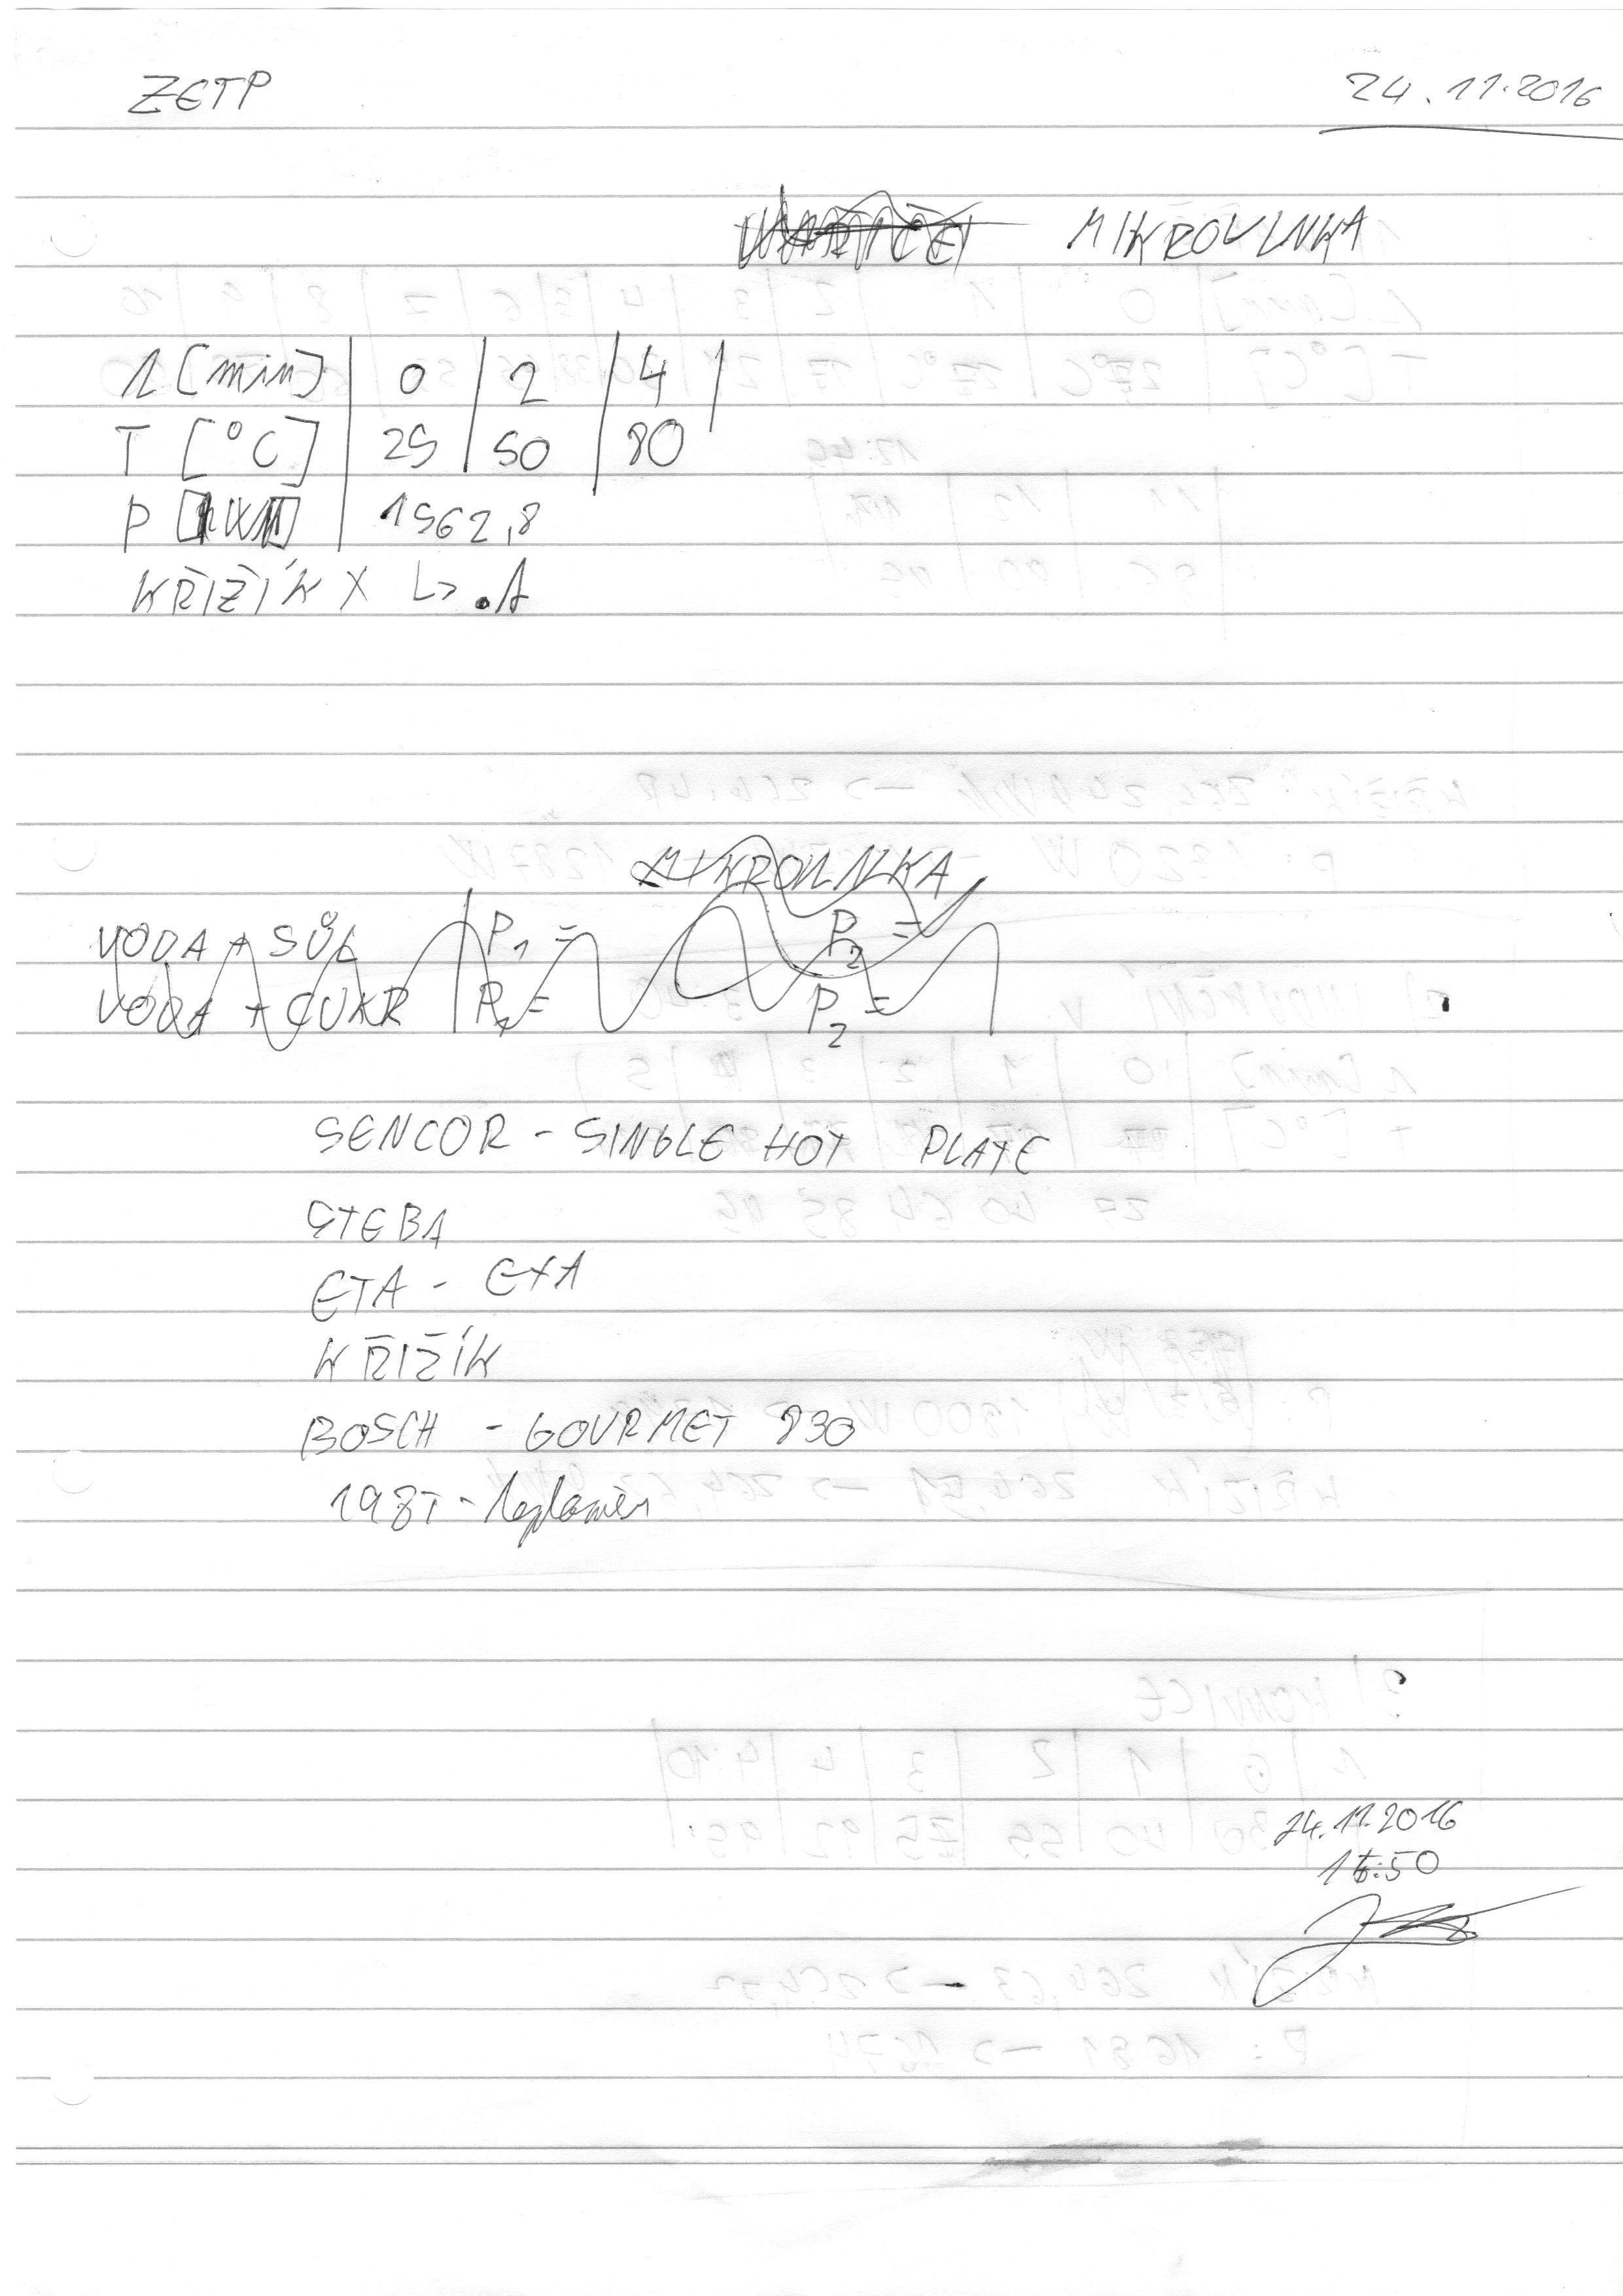 ZETP 24.11.2016
MIKROVLNKA
t [min] 0 2 4
T [°C] 25 50 80
P [W] 1562,8
KŘIŽÍK X L> .A
MIKROVLNKA
VODA + SŮL P1 = P2 =
VODA + CUKR P1 = P2 =
SENCOR - SINGLE HOT PLATE
STEBA
ETA - ETA
KŘIŽÍK
BOSCH - GOURMET 830
198T - teploměr
24.11.2016
:50